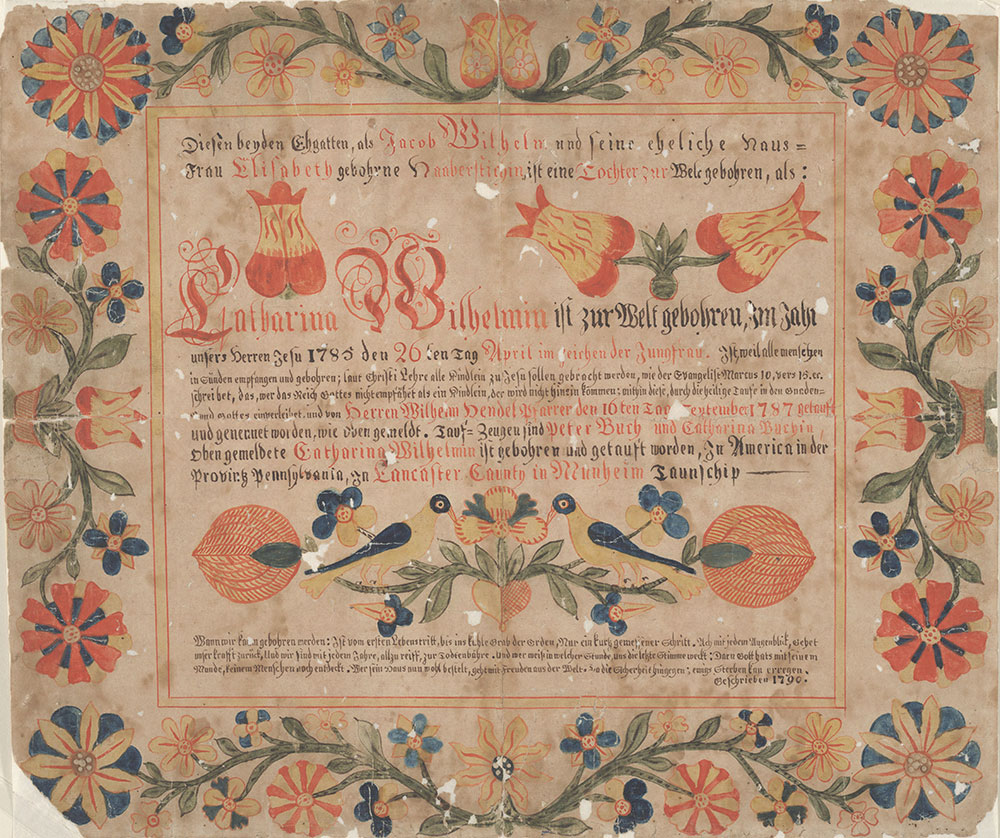 Diesen beyden Ehgatten, als Jacob Wilhelm und seine eheliche Haus=
Frau Elisabeth gebohrne ist eine Tochter zur Welt gebohren, als:
Catharina Wilhelmin ist zur Welt gebohren, Im Jahr
unsers Herren Jesu 1785 den 26ten Tag April im zeichen der Jungfrau. Ist, weil alle menschen
in Sünden empfangen und gebohren; laut Christi Lehre alle Kindlein zu Jesu sollen gebracht werden, wie der Evangelist Marcus 10, vers 15. ec.
schreibet, das, wer das Reich Gottes nicht empfähet als ein Kindlein, der wird nicht hinein kommen: mithin diese, durch die heilige Taufe in den Gnaden=
Bund Gottes einverleibet, und von Herren Wilhelm Hendel Pfarrer den 16ten Tag September 1787 getauft
und genennet worden, wie oben gemeldt. Tauf= Zeugen sind Peter Buch und Catharina Buchin
Oben gemeldete Catharina Wilhelmin ist gebohren und getauft worden, In America in der
Provintz Pennsylvania, In Lancaster Caunty in Munheim Taunschip
Wann wir kaum gebohren werden: Ist vom ersten Lebenstritt, bis ins kühle Grab der Erden, Nur ein kurtz gemessener Schritt. Ach mit jedem Augenblik, Gehet
unser krafft zurück, Und wir sind mit jedem Jahre, allzu reiff, zur Todenbahre. Und wer weis in welcher Stunde, uns die letzte Stimme weckt: Dann Gott hats mit seinem
Munde, keinem Menschen noch entdeckt. Wer sein Haus nun wohl bestelt, geht mit Freuden aus der Welt. Da die Sicherheit hingegen: ewigs Sterben kan erregen.
Geschrieben 1790.